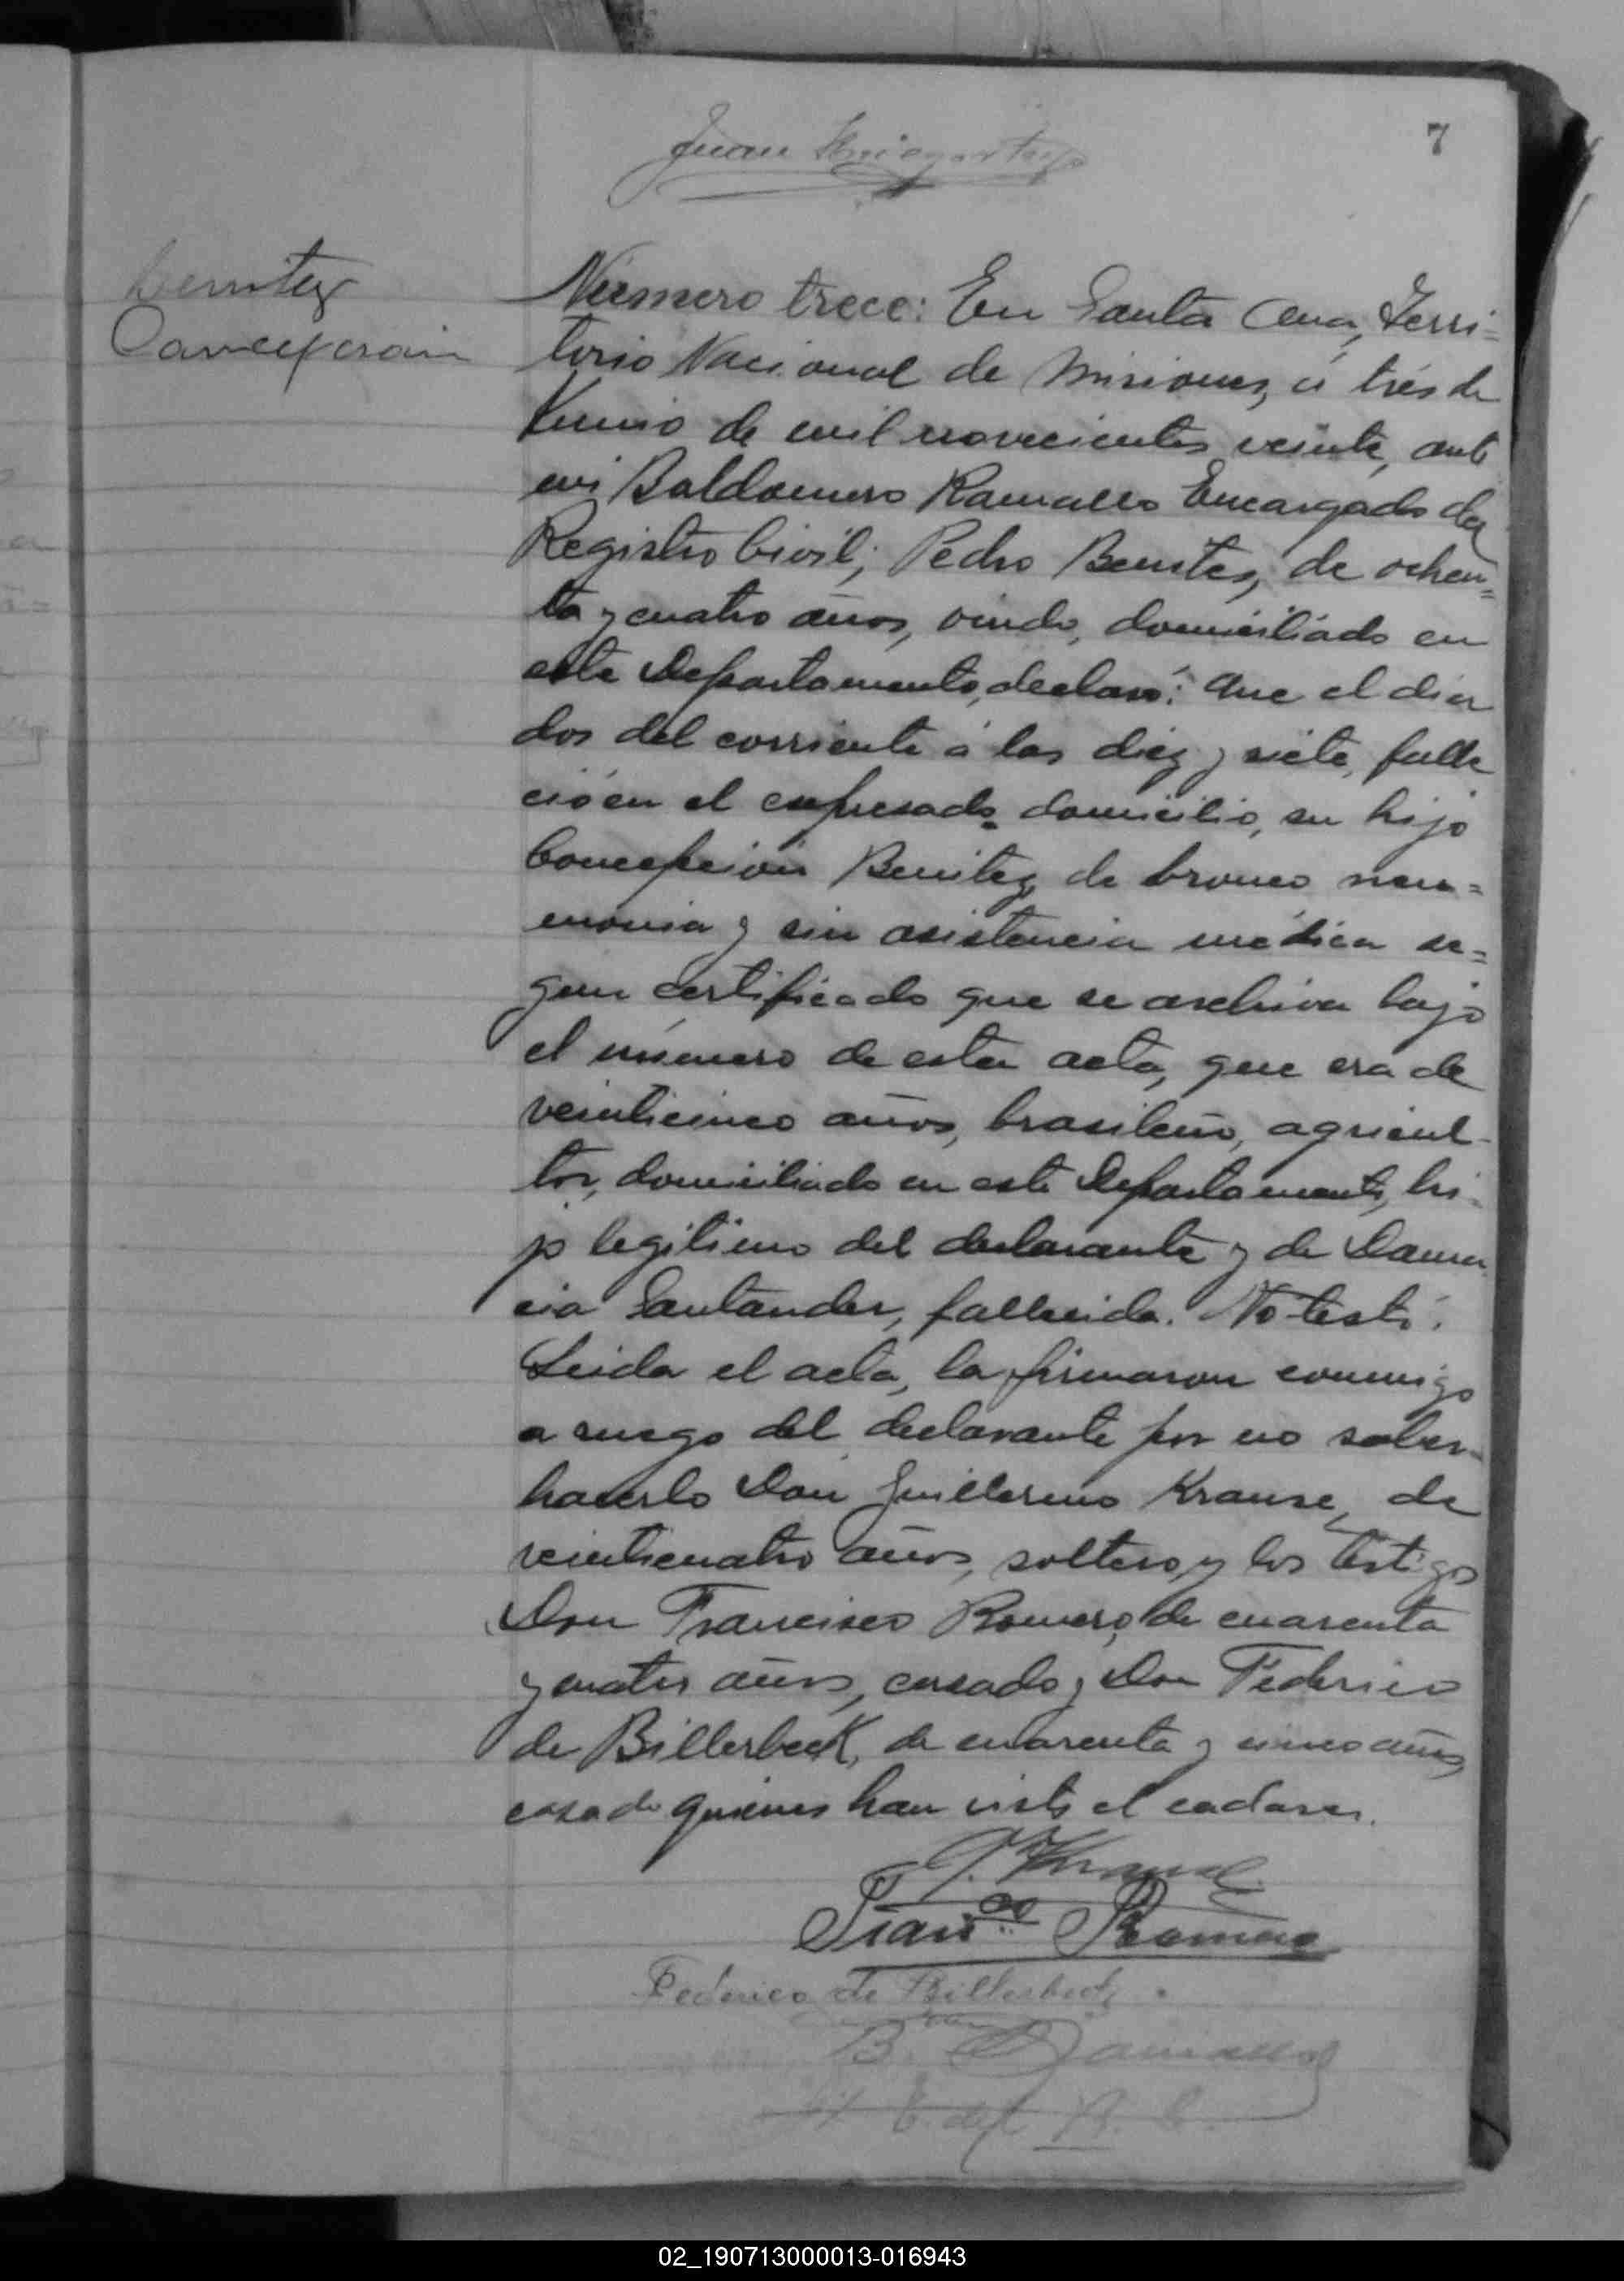 7
Juan
Benitez
Concepción
Número trece: En Santa Ana, Terri=
torio Nacional de Misiones, á trés de
Junio de mil novecientos veinte, ante
mi Baldomero Ramallo Encargado del
Registro Civil; Pedro Benites, de ochen=
ta y cuatro años, viudo, domiciliado en
este Departamento, declaró: Que el dia
dos del corriente á las diez y siete, falle
ció en el expresado domicilio, su hijo
Concepción Benitez, de bronco neu=
monia y sin asistencia médica se=
gun certificado que se archiva bajo
el número de esta acta, que era de
veinticinco años, brasileño, agricul-
tor, domiciliado en este Departamento, hi-
jo legitimo del declarante y de Dama
cia Santander, fallecida. No testó.
Leida el acta, la firmaron conmigo
a ruego del declarante por no saber
hacerlo Don Guillermo Krause, de
veinticuatro años, soltero y los testigos
Don Francisco Romero, de cuarenta
y cuatro años, casado y Don Federico
de Billerbeck, de cuarenta y cinco años,
casado quienes han visto el cadaver.
G. Krause
Franco Romero
Federico de Billerbeck
B. Ramallo
E. del R. C.
02_190713000013-016943